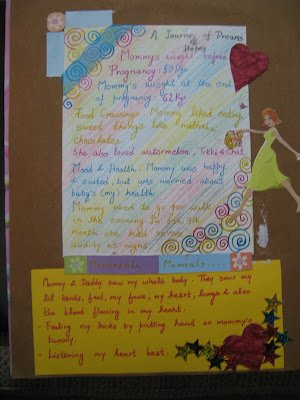 A Journey of Dreams
& Hopes
Mommy's weight before
Pregnancy: 50 Kgs
Mommy's weight at the end
of pregnancy: 62 Kgs
Food Cravings: Mommy liked eating
sweet things like mithai,
chocolates.
She also loved watermelon, Tikki & Chat
Mood & Health: Mommy was happy
& excited, but was worried about
baby's (my) health.
Mommy used to go for walk
in the evening. In 8th, 9th
Month she had severe
acidity at night.
Memorable Moments.....
Mommy & Daddy saw my whole body. They saw my
lil hands, feet, my face, my heart, lungs & also
the blood flowing in my heart.
- Feeling my kicks by putting hand on mommy's
tummy.
- Listening my heart beat.